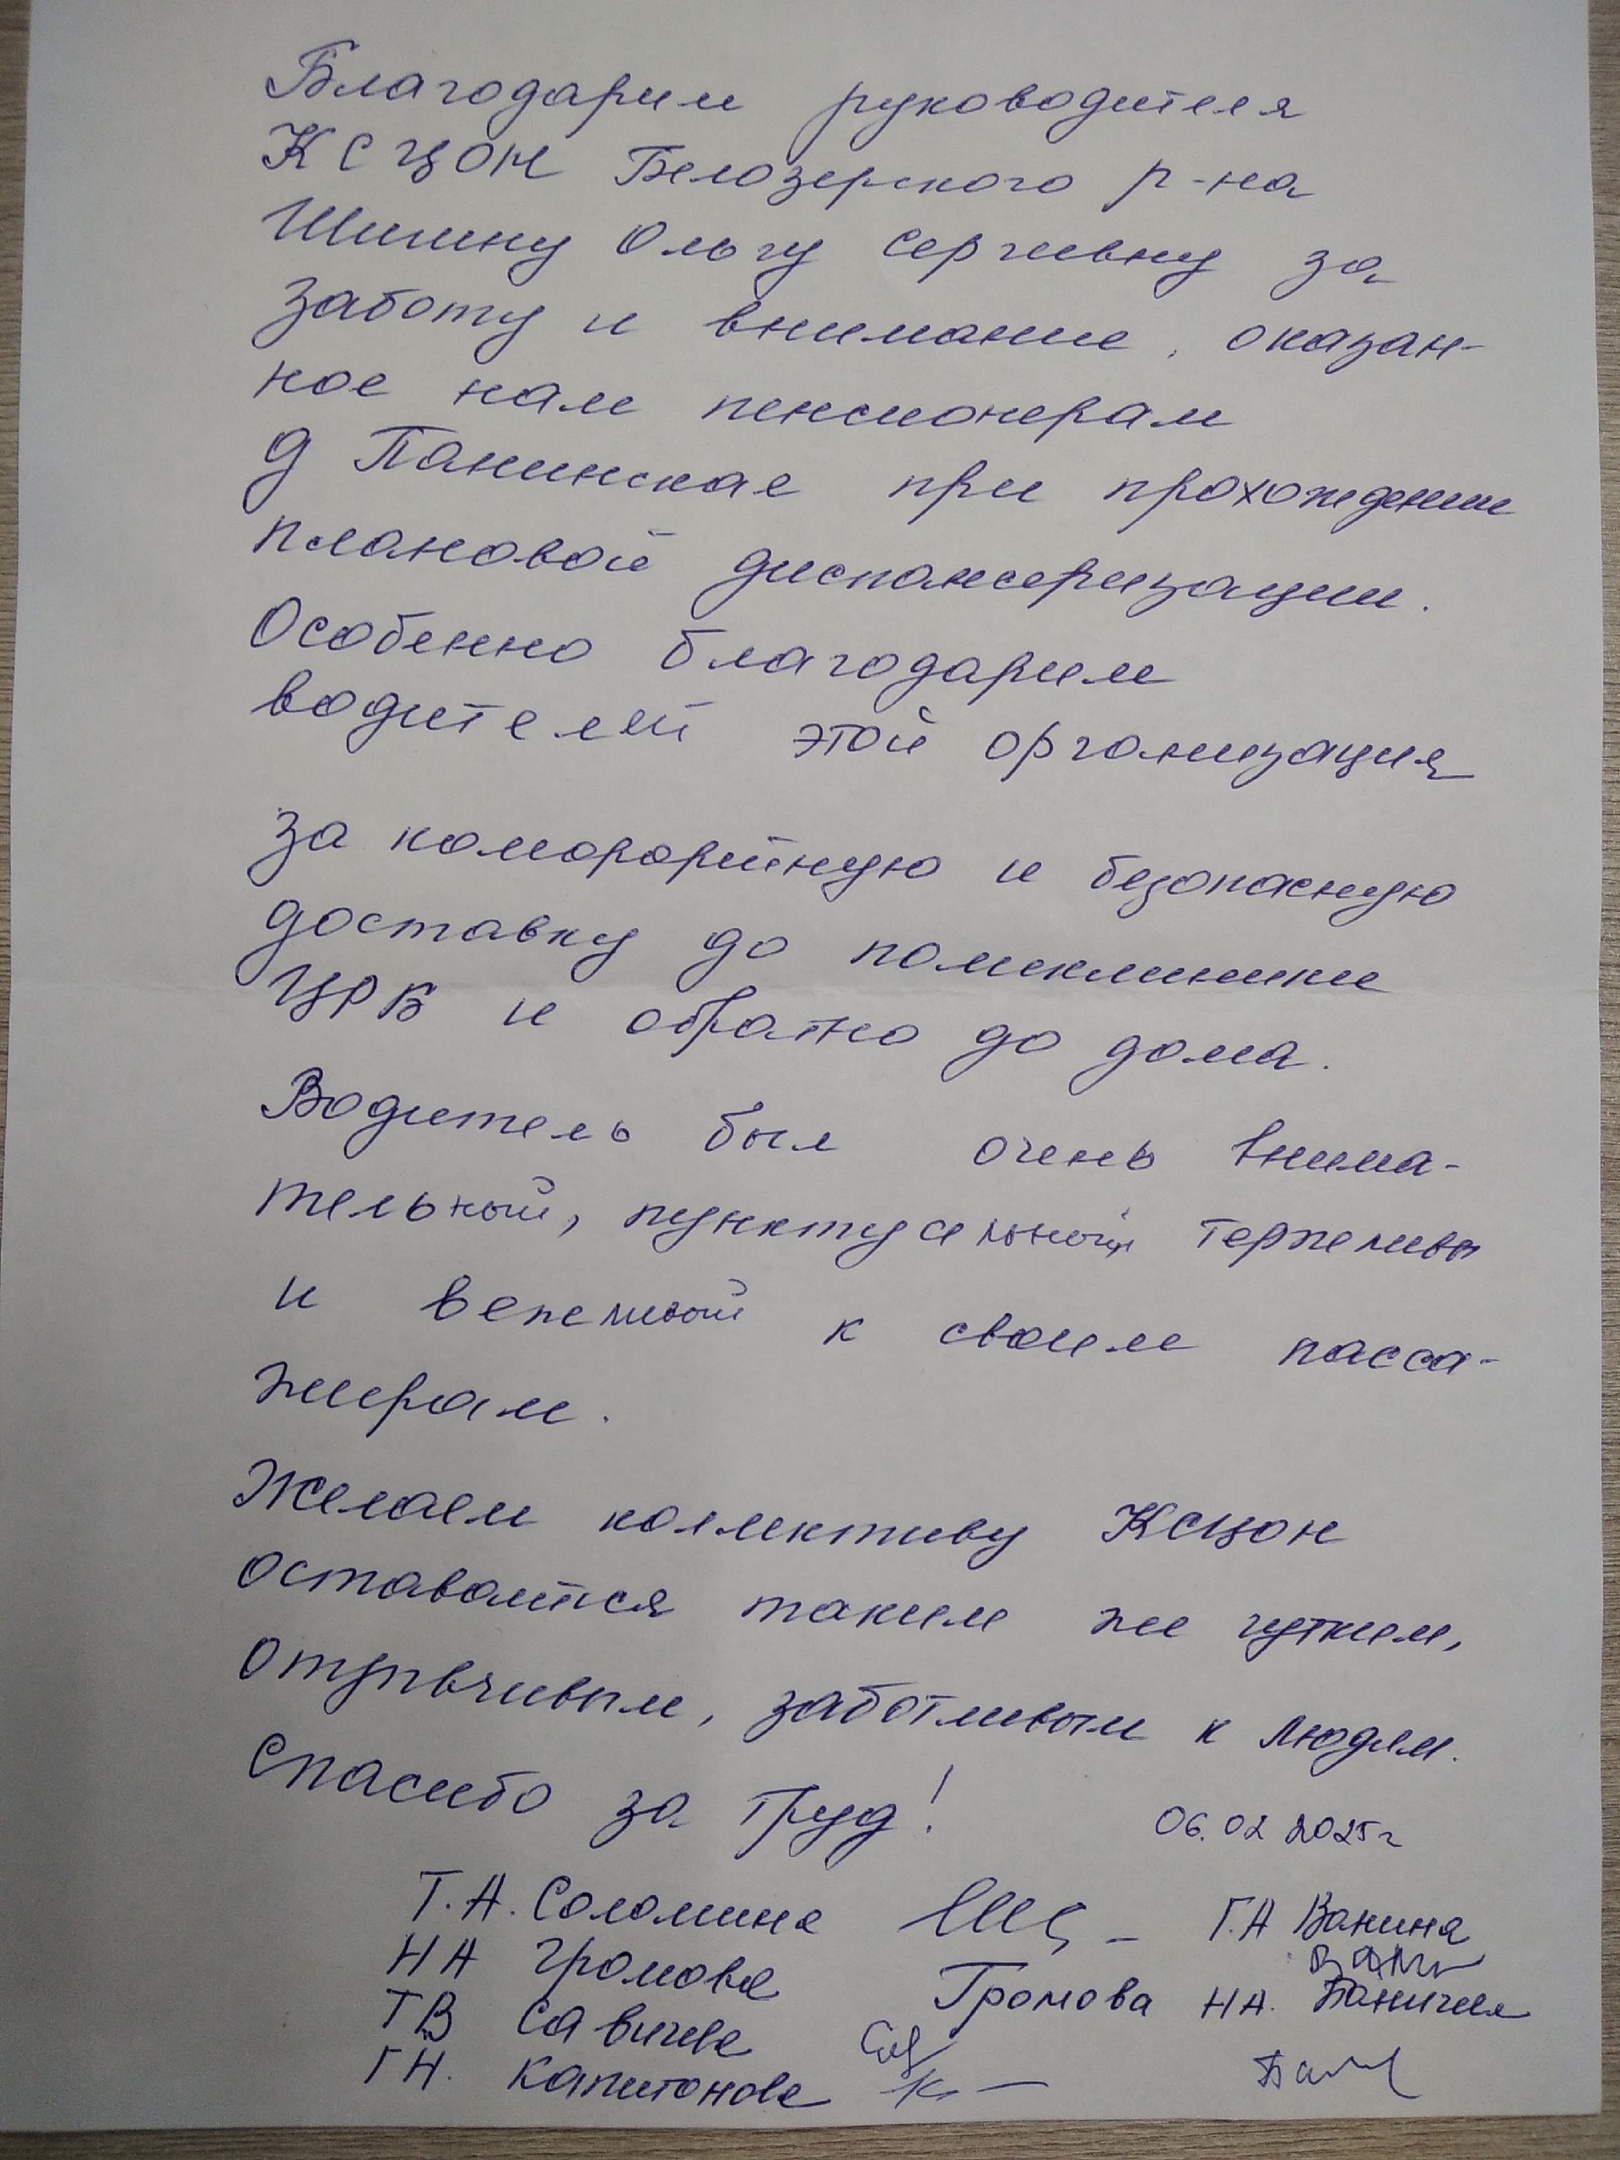 Благодарим руководителя
КСЦОН Белозерского р-на
Шилину Ольгу Сергеевну за
заботу и внимание, оказан-
ное нам пенсионерам
д Панинское при прохождении
плановой диспансеризации.
Особенно благодарим
водителей этой организация
за комфортную и безопасную
доставку до поликлиники
ЦРБ и обратно до дома.
Водитель был очень внима-
тельный, пунктуальный терпеливы
и вежливый к своим пасса-
жирам.
Желаем коллективу КСЦОН
оставаться таким же чутким,
отзывчивым, заботливым к людям.
Спасибо за труд!
06.02 2025г
Т.А. Соломина
Г.А Ванина
НА Громова
Громова НА.
ТВ Савичева
Г.Н. Капитонова